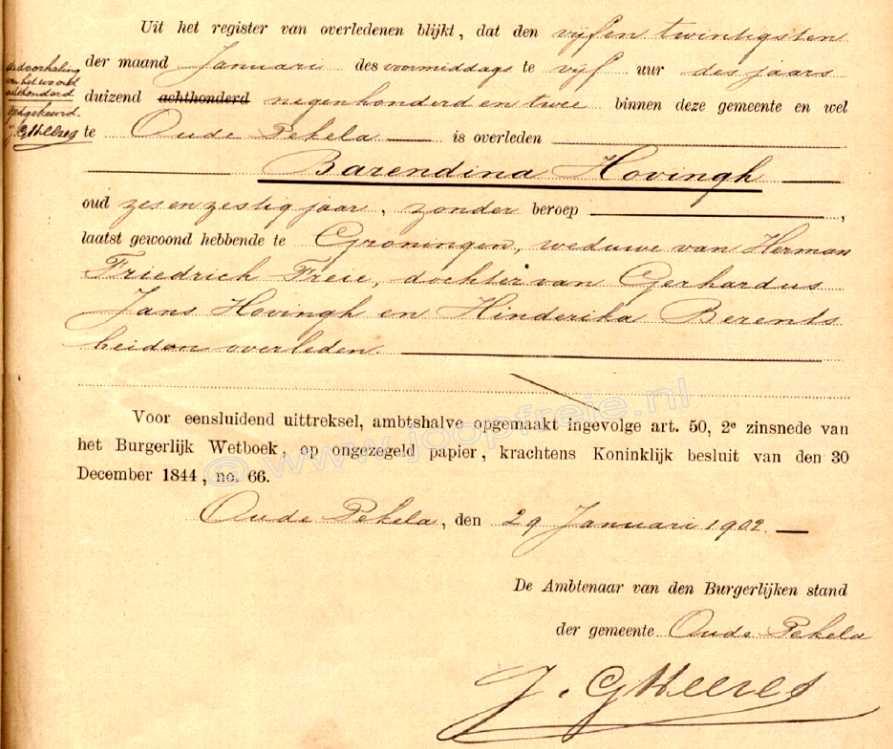 Uit het register van overledenen blijkt, dat den vijfen twintigsten
der maand Januari des voormiddags te vijf uur des jaars
duizend achthonderd negenhonderd en twee binnen deze gemeente en wel
te Oude Pekela is overleden
Barendina Hovingh
oud zes en zestig jaar, zonder beroep,
laatst gewoond hebbende te Groningen, weduwe van Herman
Friedrich Freie, dochter van Gerhardus
Jans Hovingh en Hinderika Berents
beiden overleden.
de doorhaling
van het woord
achthonderd
goedgekeurd.
J. G Heeres
© www.joopfreie.nl
Voor eensluidend uittreksel, ambtshalve opgemaakt ingevolge art. 50, 2e zinsnede van
het Burgerlijk Wetboek, op ongezegeld papier, krachtens Koninklijk besluit van den 30
December 1844, no. 66.
Oude Pekela, den 29 Januari 1902.
De Ambtenaar van den Burgerlijken stand
der gemeente Oude Pekela
J. G Heeres